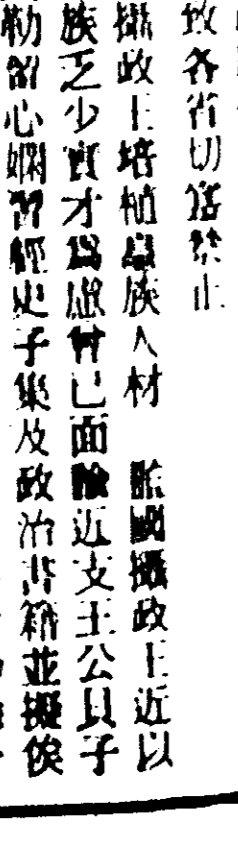 致各省切當禁止
攝政王培植皇族人材 監國攝政王近以
族乏少實才爲慮曾已面諭近支王公貝子
勒留心嫻習經史子集及政治書籍並擬俟